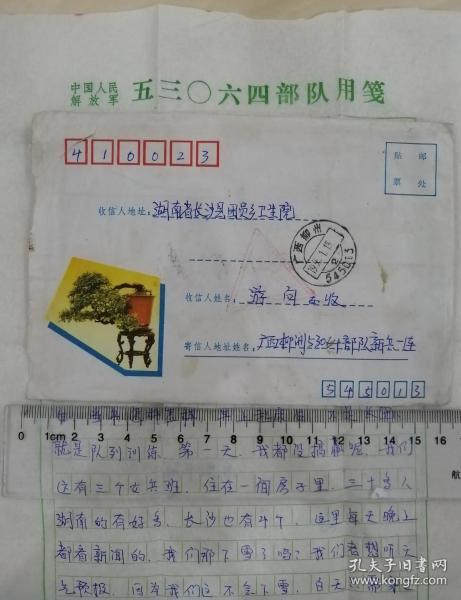 中国人民
解放军 五三〇六四部队用笺
410023
贴 邮
票 处
收信人地址：湖南省长沙县团员乡卫生院
广西柳州
545013
收信人姓名：
收
寄信人地址姓名：广西柳州53064部队新兵一连
545013
0 1cm 2 3 4 5 6 7 8 9 10 11 12 13 14 15 16
就是队列训练。第一天，我都没搞赢呢。我们
这有三个女兵班，住在一间房子里，三十多人
湖南的有好多，长沙也有4个，这里每天晚上
都看新闻的，我们那下雪了吗？我们老想听天
气预报，因为我们这不会下雪，白天
孔夫子旧书网